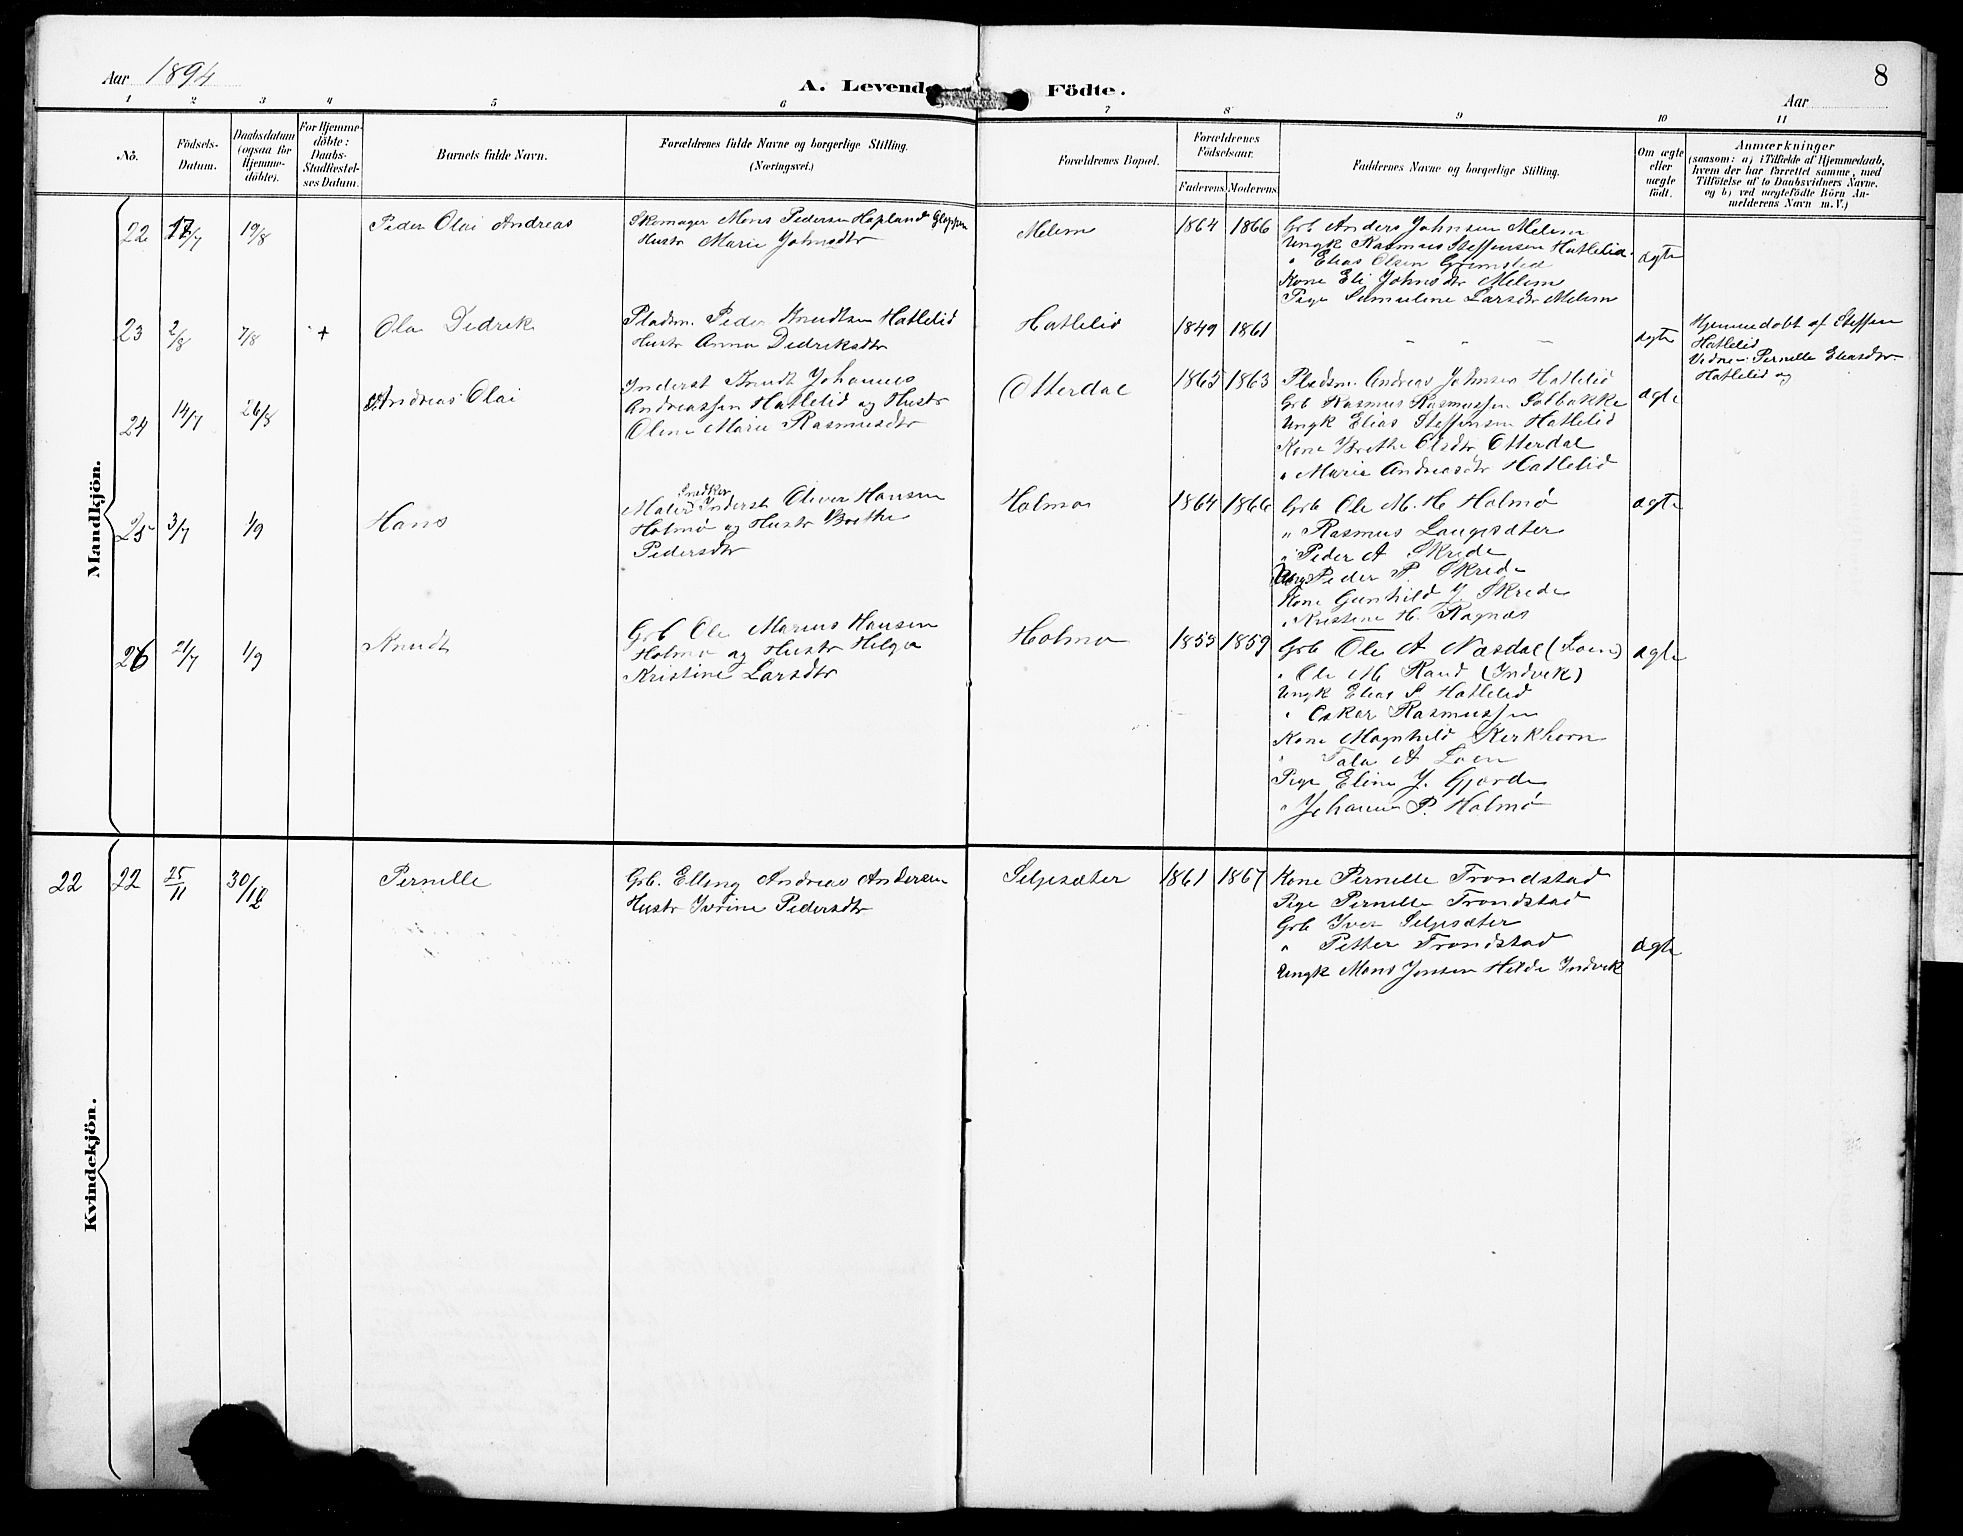 Aar 1894
A. Levende Födte.
8
Aar
1 2 3 4 5 6 7 8 9 10 11
No.
Födsels-Datum.
Daabsdatum (ogsaa for Hjemmedöbte).
For Hjemmedöbte: Daabs-Stadfæstelses Datum.
Barnets fulde Navn.
Forældrenes fulde Navne og borgerlige Stilling. (Næringsvei.)
Forældrenes Bopæl.
Forældrenes Födselsaar.
Faderens
Moderens
Faddernes Navne og borgerlige Stilling.
Om ægte eller uægte födt.
Anmærkninger
(saasom: a) i Tilfælde af Hjemmedaab,
hvem der har forrettet samme, med
Tilföielse af to Daabsvidners Navne,
og b) ved uægtefödte Börn An-
melderens Navn m. V.)
Mandkjön.
22 17/7 19/8 Peder Olai Andreas
Skomager Mons Pedersen Hopland Gloppen
Hustr Marie Johnsdtr
Melem 1864 1866
Grb Anders Johnsen Melem
Ungk Rasmus Steffensen Hatlelid
" Elias Olsen Grimstad
Kone Eli Johnsdtr Melem
Pige Samueline Larsdtr Melem
ægte
23 2/8 7/8 + Ola Didrik
Pladsm. Peder Knudtsen Hatlelid
Hustr Anna Didriksdtr
Hatlelid 1849 1861
- - -
ægte
Hjemmedøbt af Steffen
Hatlelid
Vidne: Pernelle Eliasdtr
Hatlelid og
24 14/7 26/8 Andreas Olai
Inderst Knudt Johannes
Andreassen Hatlelid og Hustr
Oline Marie Rasmusdtr
Otterdal 1865 1863
Pladsm. Andreas Johnsen Hatlelid
Grb Rasmus Rasmussen Solbakke
Ungk Elias Steffensen Hatlelid
Kone Brithe Olsdtr Otterdal
" Marie Andreasdtr Hatlelid
ægte
25 3/7 1/9 Hans
Snedker
Maler Inderst Oliver Hansen
Holmø og Hustr Brithe
Pedersdtr
Holmø 1864 1866
Grb Ole M. H. Holmø
" Rasmus Laugesæter
" Peder A Skrede
Ung Peder P. Skrede
Kone Gunhild J. Skrede
" Kristine H. Ragnæs
ægte
26 21/7 1/9 Knudt
Grb Ole Marius Hansen
Holmø og Hustr Helga
Kristine Larsdtr
Holmø 1855 1859
Grb Ole A Næsdal (Loen)
" Ole M Rand (Indvik)
Ungk Elias S. Hatlelid
" Oskar Rasmussen
Kone Magnhild Kirkhorn
" Tala A Loen
Pige Eline J. Gjørde
" Johanne P. Holmø
ægte
Kvindekjön.
22 22 25/11 30/12 Pernille
Grb. Elling Andreas Andersen
Hustr Ivrine Pedersdtr
Seljesæter 1861 1867
Kone Pernille Trondstad
Pige Pernille Trondstad
Grb Iver Seljesæter
" Petter Trondstad
Ungk Mons Jonsen Hilde Indvik
ægte